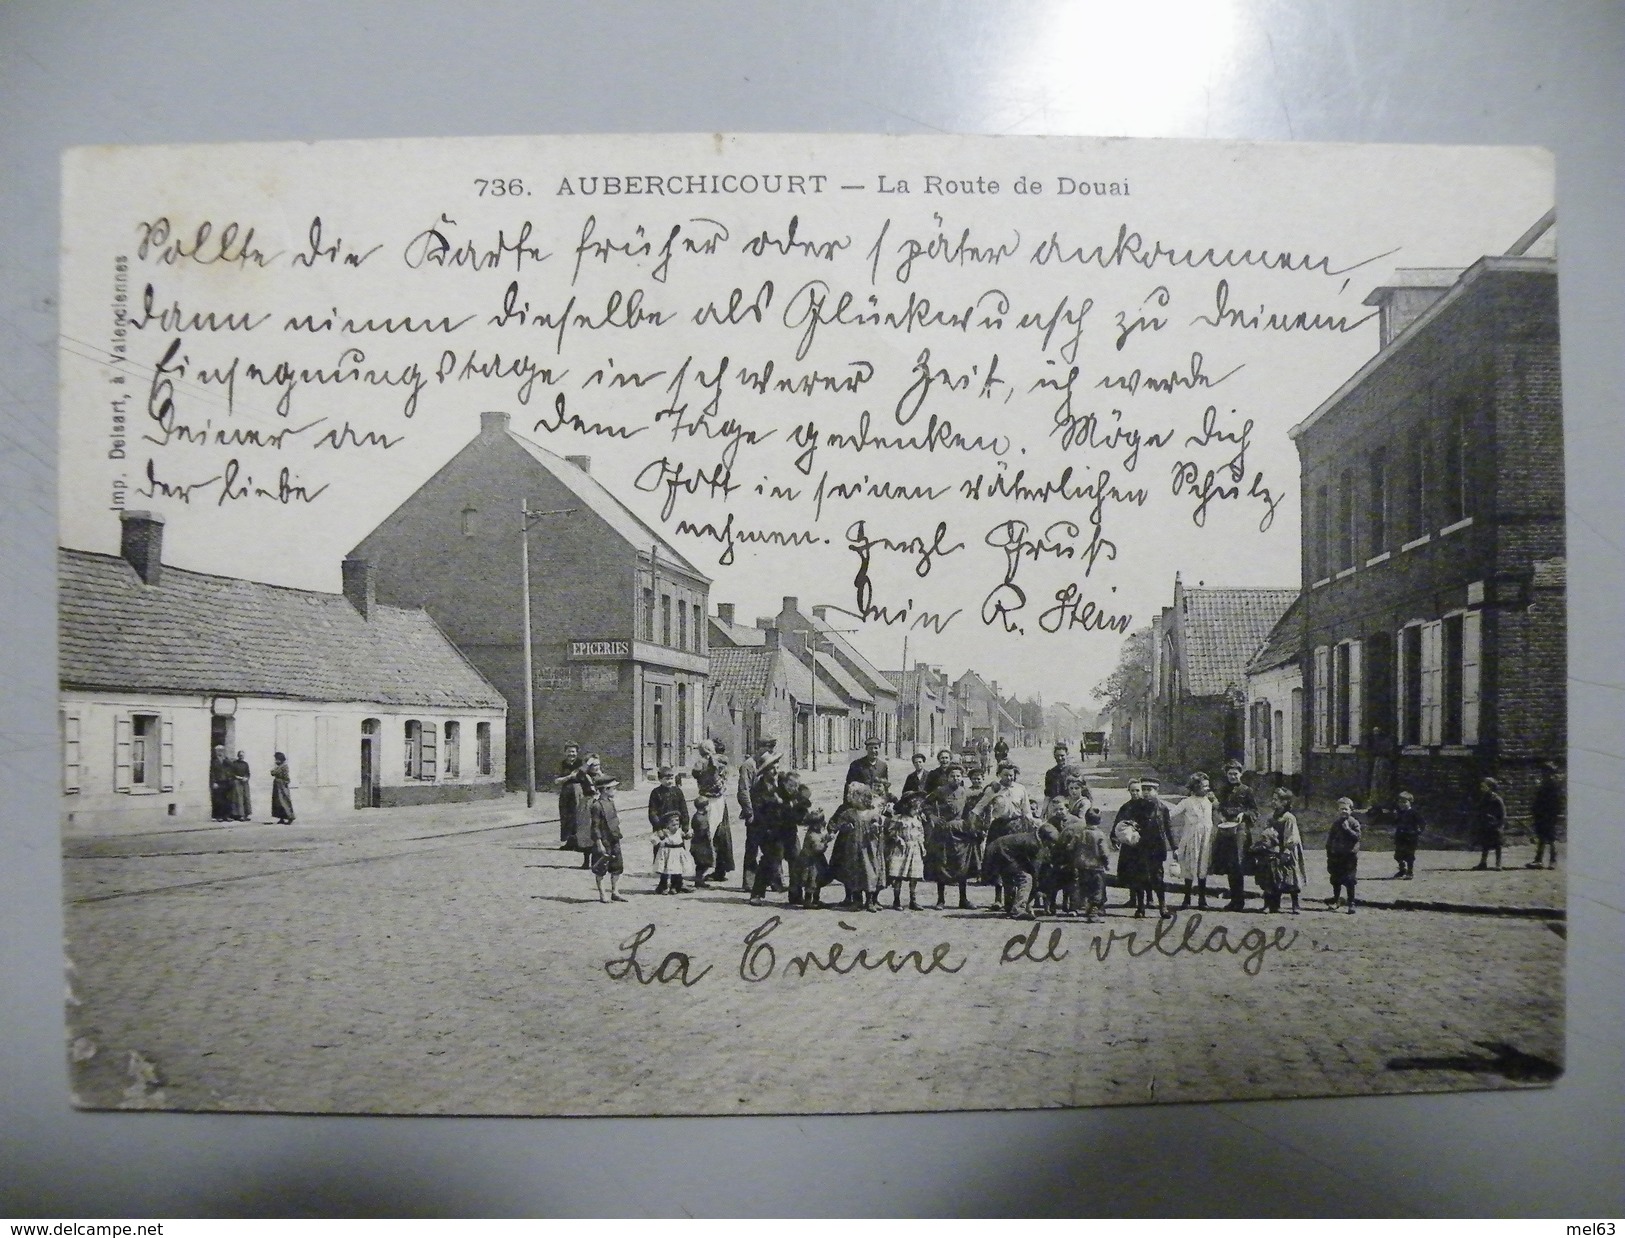 736. AUBERCHICOURT — La Route de Douai
Sollte die Karte früher oder später ankommen,
dann nimm dieselbe als Glückwunsch zu Deinem
Einsegnungstage in schwerer Zeit, ich werde
Deiner an dem Tage gedenken. Möge Dich
der liebe Gott in seinen väterlichen Schutz
nehmen. Herzl. Gruß
Dein R. Stein.
Imp. Delsart, à Valenciennes
EPICERIES
La Crème de village.
www.delcampe.net
mel63